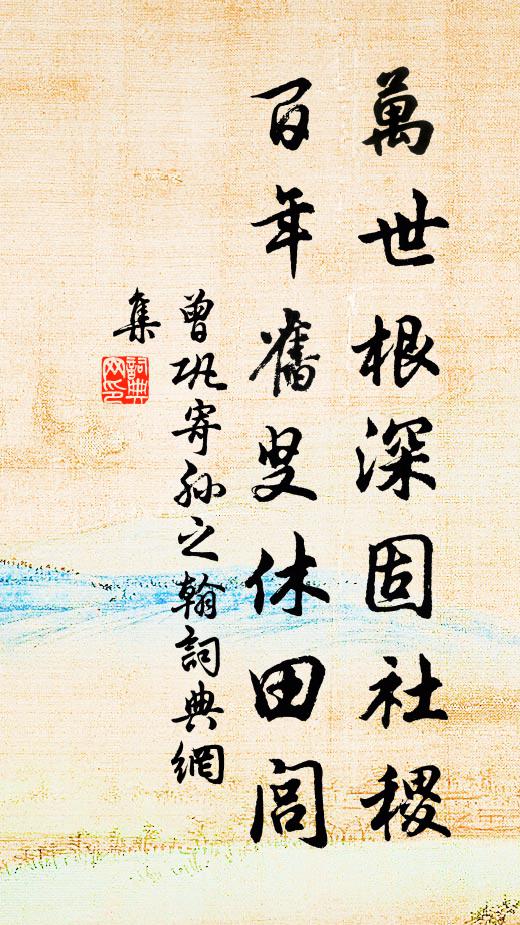 萬世根深固社稷
百年舊叟休田閭
曾巩寄孙之翰詞典網
集
詞典網印